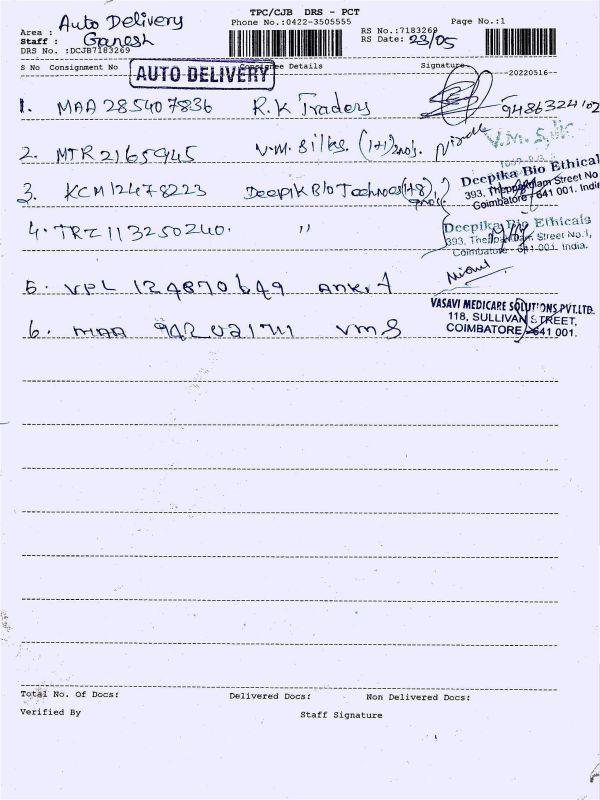 TPC/CJB DRS - PCT
Area : Auto Delivery
Phone No.:0422-3505555
RS No.:7183269
Page No.:1
Staff : Ganesh
RS Date: 23/05
DRS No. :DCJB7183269
S No Consignment No
AUTO DELIVERY
Consignee Details
Signature
--20220516--
1. MAA 285407836 R.K Traders
9486324102
2. MTR 2165945 V.M. Silks. (1+1) 2nos.
V.M. Silk
3. KCM 12478223 Deepik Bio Technoes (1+8) 9nos.
Deepika Bio Ethicals
393, Theppakulam Street No
Coimbatore - 641 001. India
4. TRZ 113250240. "
Deepika Bio Ethicals
393, Theppakulam Street No.1,
Coimbatore - 641 001. India.
5. VPL 124870649 Ankit
6. MAA 942021711 VMS
VASAVI MEDICARE SOLUTIONS PVT.LTD.
118, SULLIVAN STREET,
COIMBATORE - 641 001.
Total No. Of Docs:
Delivered Docs:
Non Delivered Docs:
Verified By
Staff Signature